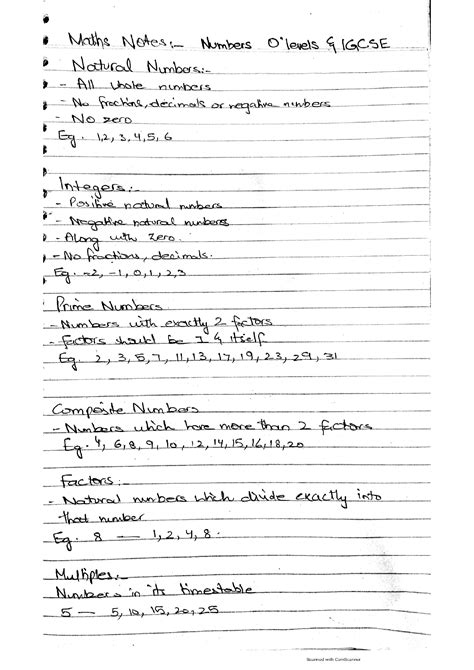 Maths Notes:- Numbers O'levels & IGCSE
Natural Numbers:-
- All whole numbers
- No fractions, decimals or negative numbers
- No zero
Eg. 1,2, 3, 4, 5, 6
Integers:-
- Positive natural numbers
- Negative natural numbers
- Along with zero.
- No fractions, decimals.
Eg. -2, -1, 0, 1, 2, 3
Prime Numbers
- Numbers with exactly 2 factors
- Factors should be 1 & itself
Eg. 2, 3, 5, 7, 11, 13, 17, 19, 23, 29, 31
Composite Numbers
- Numbers which have more than 2 factors
Eg. 4, 6, 8, 9, 10, 12, 14, 15, 16, 18, 20
Factors:-
- Natural numbers which divide exactly into
that number
Eg. 8 — 1, 2, 4, 8.
Multiples:-
Numbers in its timestable
5 — 5, 10, 15, 20, 25
Scanned with CamScanner